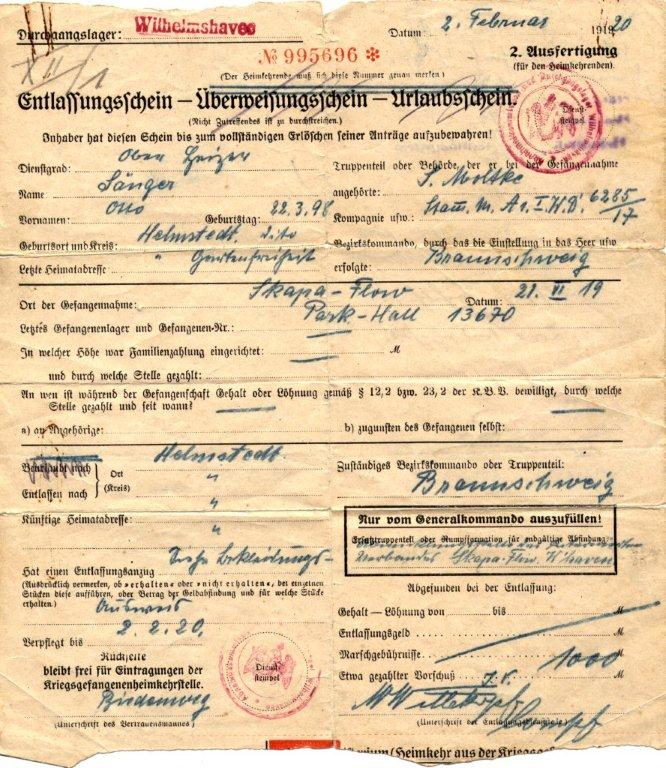 Durchgangslager: Wilhelmshaven
Datum 2. Februar 1920
№ 995696 *
2. Ausfertigung
(für den Heimkehrenden).
(Der Heimkehrende muß sich diese Nummer genau merken)
Entlassungsschein – Überweisungsschein – Urlaubsschein.
(Nicht Zutreffendes ist zu durchstreichen.)
Dienst-
stempel
Inhaber hat diesen Schein bis zum vollständigen Erlöschen seiner Anträge aufzubewahren!
Dienstgrad: Ober Heizer
Name Sänger
Vornamen: Otto Geburtstag: 22.3.98
Geburtsort und Kreis: Helmstedt. dito
Letzte Heimatadresse " Gartenfreiheit
Truppenteil oder Behörde, der er bei der Gefangennahme
angehörte: S. Moltke
Kompagnie usw: 6285/17
Bezirkskommando, durch das die Einstellung in das Heer usw
erfolgte: Braunschweig
Ort der Gefangennahme: Skapa-Flow Datum: 21. VI 19
Letztes Gefangenenlager und Gefangenen-Nr.: Park-Hall 13670
In welcher Höhe war Familienzahlung eingerichtet: — M
und durch welche Stelle gezahlt:
An wen ist während der Gefangenschaft Gehalt oder Löhnung gemäß § 12,2 bzw. 23,2 der K.B.V. bewilligt, durch welche
Stelle gezahlt und seit wann?
a) an Angehörige: b) zugunsten des Gefangenen selbst:
Beurlaubt nach
Entlassen nach
Ort
(Kreis)
Helmstedt.
"
Künftige Heimatadresse: "
Zuständiges Bezirkskommando oder Truppenteil:
Braunschweig
Nur vom Generalkommando auszufüllen!
Ersatztruppenteil oder Rumpfformation für endgültige Abfindung:
Verbandes Skapa-Flow W'haven
Siehe Bekleidungs-
Hat einen Entlassungsanzug
(Ausdrücklich vermerken, ob »erhalten« oder »nicht erhalten«, bei einzelnen
Stücken diese aufführen, oder Betrag der Geldabfindung und für welche Stücke
erhalten.)
Ausweis
Verpflegt bis 2.2.20.
Rückseite
bleibt frei für Eintragungen der
Kriegsgefangenenheimkehrstelle.
(Unterschrift des Vertrauensmannes)
Dienst-
stempel
Abgefunden bei der Entlassung:
Gehalt – Löhnung von bis M
Entlassungsgeld M
Marschgebührnisse M
Etwa gezahlter Vorschuß 1000 M
(Unterschrift der Entlassungsstelle)
(Heimkehr aus der Kriegsge